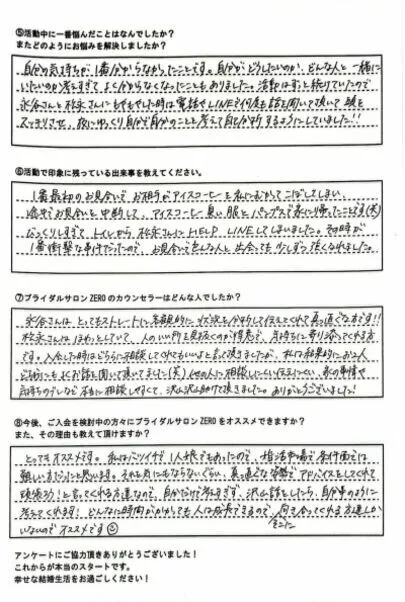 ⑤活動中に一番悩んだことはなんでしたか？
またどのようにお悩みを解決しましたか？
自分の気持ちが1番分からなかったことです。自分がどうしたいのか、どんな人と一緒に
いたいのか考えすぎてよく分からなくなったこともありました。活動はずっと続けていたので
永谷さんと松永さんにもやもやした時は電話やLINEで何度も話を聞いて頂いて頭を
スッキリさせ、夜にゆっくり自分で自分のことを考えて自己分析するようにしていました!!
⑥活動で印象に残っている出来事を教えてください。
1番最初のお見合いで、お相手がアイスコーヒーを私にむかってこぼしてしまい、
途中でお見合いを中断して、アイスコーヒー臭い服とパンプスで家に帰ったことです(笑)
びっくりしすぎてトイレから松永さんにHELP LINEしてしまいました。その時が
1番衝撃な事件だったので、お見合いで色んな人と出会っても少しずつ強くなれました。
⑦ブライダルサロン ZERO のカウンセラーはどんな人でしたか？
永谷さんは、とってもストレートに客観的に状況を分析して伝えてくれて真っ直ぐな方です!!
松永さんは、ほわっとしていて、人の良い所を見抜くのが得意で、気持ちに寄り添ってくれる方
です。入会した時はどちらに相談してくれてもいいよと言って頂きましたが、私は結果的にお二人
どちらにもよくお話を聞いて頂いてました(笑) 他の人に相談しにくい
気持ちのブレなど本当に相談しやすくて、沢山沢山助けて頂きました。ありがとうございました!
⑧今後、ご入会を検討中の方々にブライダルサロン ZERO をオススメできますか？
また、その理由も教えて頂けますか？
とってもオススメです。私はバツイチで1人娘でもあったので、婚活市場で条件面では
難しい方だったと思います。それを気にもならないぐらい、真っ直ぐな姿勢でアドバイスをしてくれて
頑張ろう！と言ってくれる方達なので、自分だけで考えすぎず、沢山話をしたら、自分事のように
考えてくれます! どんなに時間がかかっても人は成長できるので、そこに向き合ってくれる方達しか
いないのでオススメです
アンケートにご協力頂きありがとうございました！
これからが本当のスタートです。
幸せな結婚生活をお過ごしください！